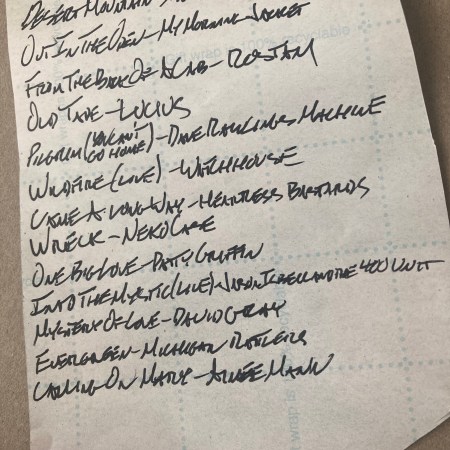 Desert Mountain
Out In The Open - My Morning Jacket
From The Back Of A Cab - Rostam
Old Tape - Lucius
Pilgrim (You Can't Go Home) - Dave Rawlings Machine
Wildfire (Live) - Watchhouse
Came A Long Way - Heartless Bastards
Wreck - Neko Case
One Big Love - Patty Griffin
Into The Mystic (Live) Jason Isbell and the 400 Unit
Mystery Of Love - David Gray
Evergreen - Michigan Rattlers
Calling On Mary - Aimee Mann